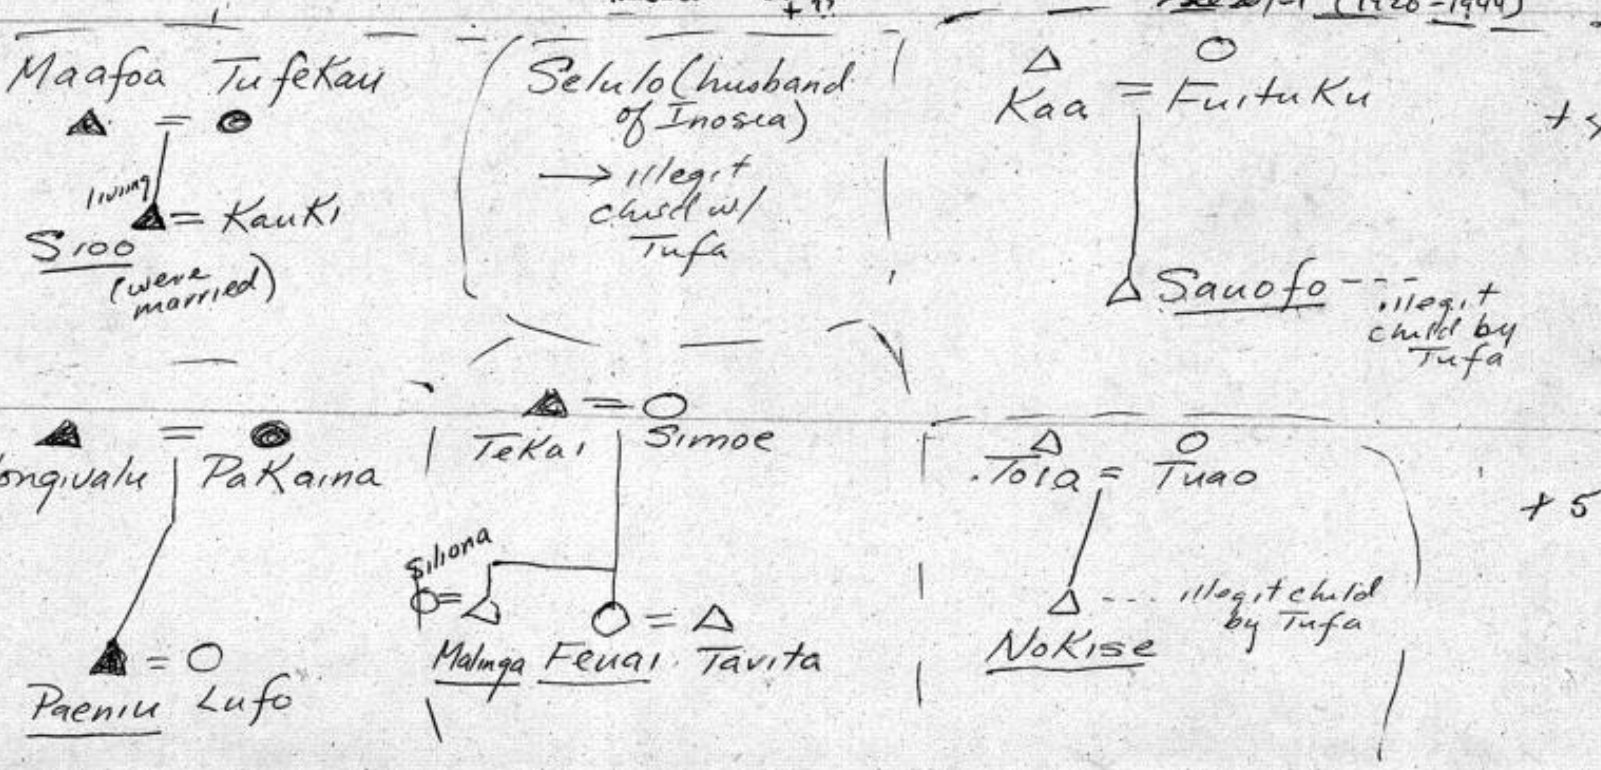 (1920-1944)
Maafoa = Tufekau
living
= Kauki
Sioo
(were
married)
Selulo (husband
of Inosia)
→ illegit
child w/
Tufa
Kaa = Fuituku
Sauofo ---
illegit
child by
Tufa
ongivalu = Pakaina
Paeniu = Lufo
Tekai = Simoe
Siliona
=
Malinga Feuai = Tavita
Toia = Tuao
--- illegit child
by Tufa
Nokise
+ 5